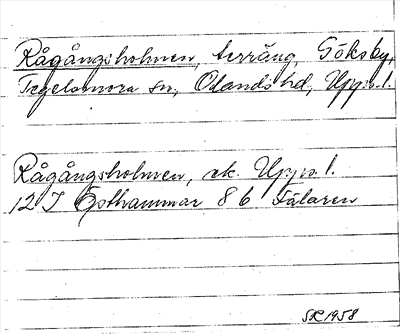 Rågångsholmen, terräng, Göksby,
Tegelsmora sn, Olands hd, Upps. l.
Rågångsholmen, ek. Upps. l.
12 I Östhammar 8 b Fälaren
SR 1958